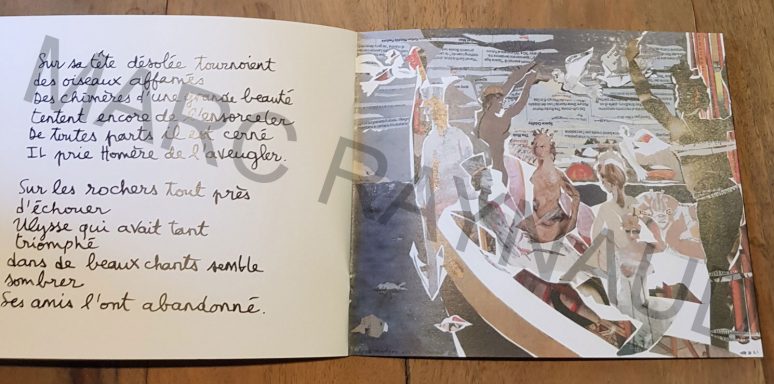 Sur sa tête désolée tournoient
des oiseaux affamés
Des chimères d'une grande beauté
tentent encore de l'ensorceler
De toutes parts il est cerné
Il prie Homère de l'aveugler.
Sur les rochers tout près
d'échouer
Ulysse qui avait tant
triomphé
dans de beaux chants semble
sombrer
Ses amis l'ont abandonné.
MARC RAYNAUD